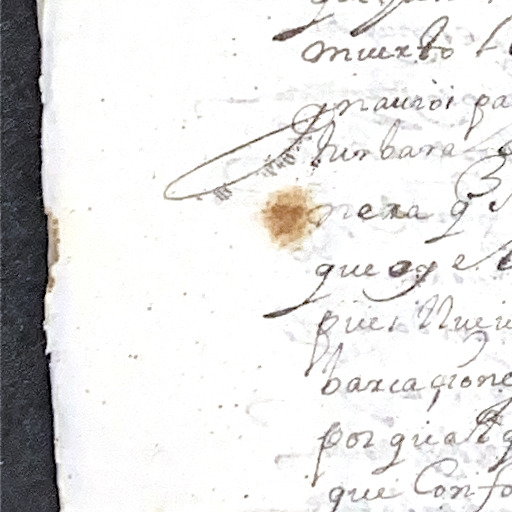 muerto
turbara
nera q
que oy e
pues Nue
barcacione
por qual q
que Confo